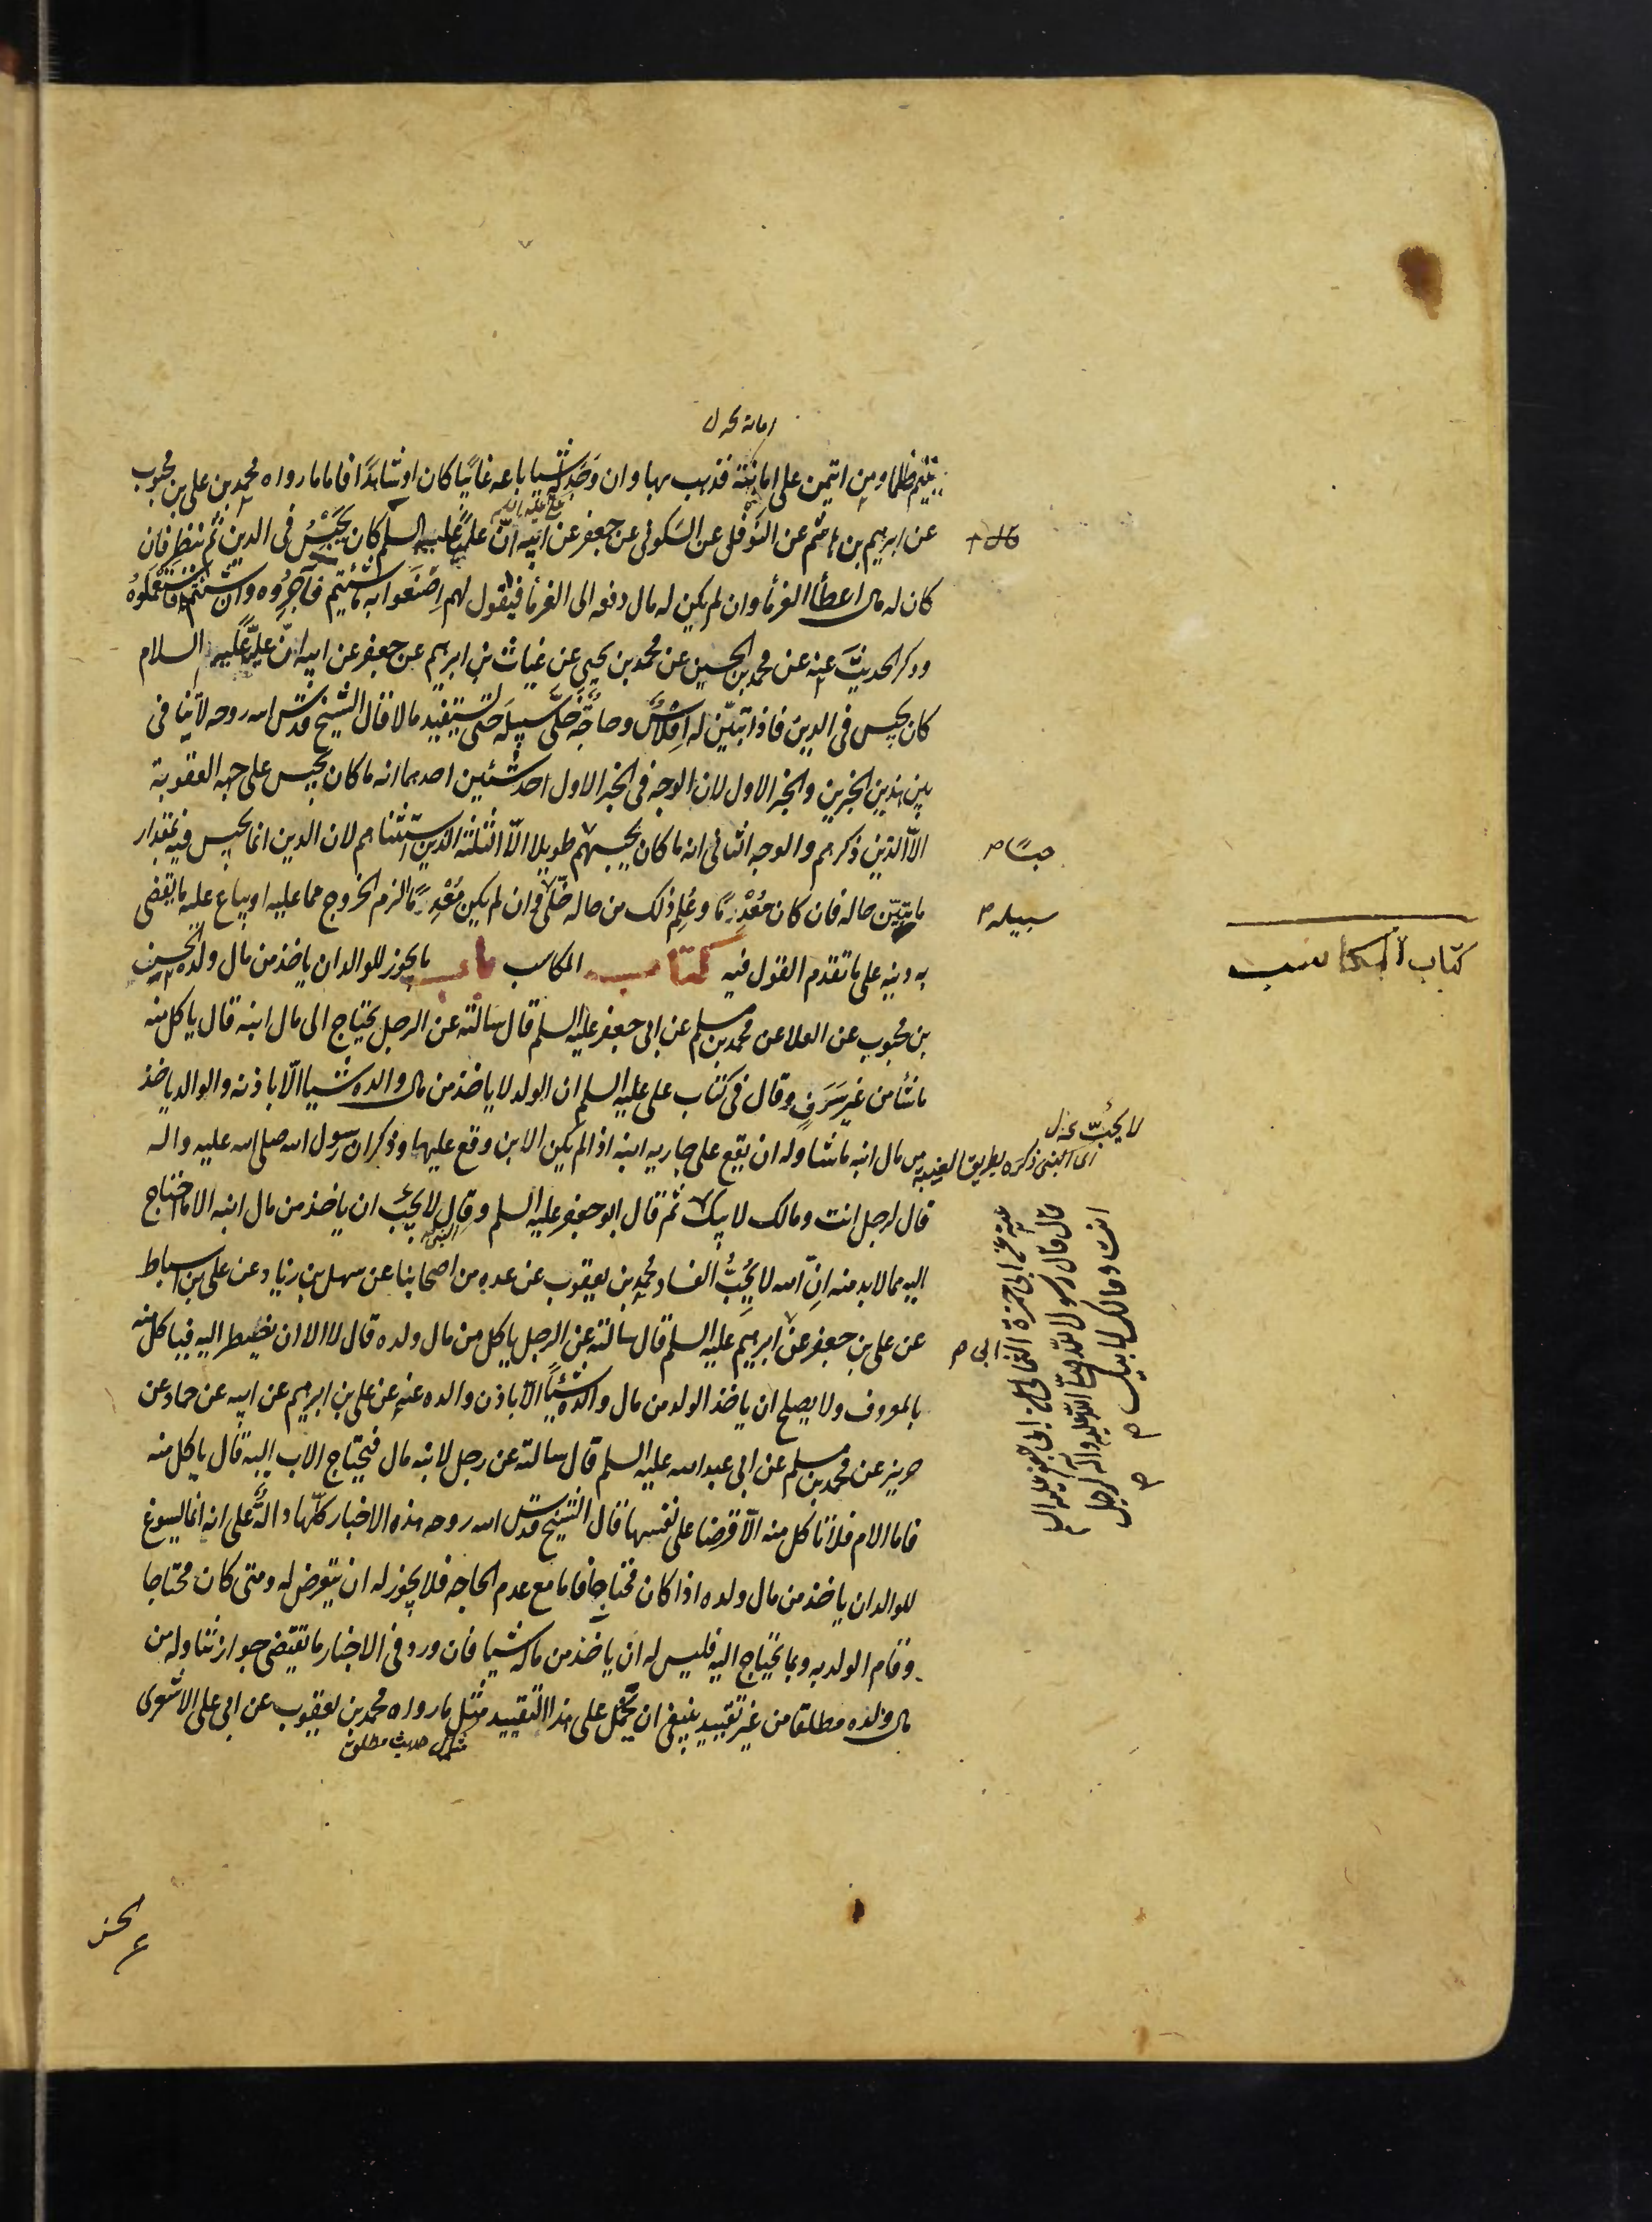 امانة نخه ل
يتيم ظلما ومن ائتمن على امانته فذهب بها وان وَجَد له شيا باعه غائبًا كان او شاهدًا فاما ما رواه محمد بن على بن محبوب
عن ابرهيم بن هاشم عن النَّوفَلى عن السَكونى عن جعفر عن ابيه انّ عليًّا عليه السلم كان يَحْبِسُ فى الدين ثم ينظر فان
على عليه السلم
كان له مال اعطأ الغرمأ وان لم يكن له مال دفعه الى الغرمأ فيقول لهم اِصْنَعوا به ما شئتم فآجِرُوه وان شئتم فاستعملوهُ
وذكر الحديثَ عنه عن محمد بن الحسين عن محمد بن يحيى عن غياث بن ابرهيم عن جعفر عن ابيه انّ عليًّا عليه السلام
كان يحبس فى الدين فاذا تبيّن له اِفلاسٌ وحاجَّةٌ خلّى سبيلَه حتى يستفيد مالا قال الشيخ قدّس الله روحه لا تنافى
بين هذين الخبرين والخبر الاول لان الوجه فى الخبر الاول احد شئين احدهما انه ما كان يحبس على جهه العقوبة
الاّ الذين ذكرهم والوجه الثانى انه ما كان يحبسهم طويلا الاّ الثلثة الذين استثناهم لان الدين انما يحبس فيه بمقدار
حبسًا م
ما تبيّن حاله فان كان مُعْدِمًا وعُلِم ذلك من حاله خلّى وان لم يكن مُعْدِمًا الزم الخروج مما عليه او يباع عليه ما يقضى
سبيله م
به دينه على ما تقدم القول فيه كتاب المكاسب باب ما يجوز للوالد ان ياخذ من مال ولده الحسن
كتاب المكاسب
بن محبوب عن العلا عن محمد بن مسلم عن ابى جعفر عليه السلم قال سالته عن الرجل يحتاج الى مال ابنه قال ياكل منه
ما شأ من غير سَرَفٍ وقال فى كتاب على عليه السلم ان الولد لا ياخذ من مال والده شيا الاّ باذنه والوالد ياخذ
من مال ابنه ما شا وله ان يقع على جاريه ابنه اذا لم يكن الابن وقع عليها وذكر ان رسول الله صلى الله عليه واله
لا يحبّ نخه ل
اى النبى ذكرَه بطريق الغيبه
قال لرجل انت ومالك لابيك ثم قال ابو جعفر عليه السلم وقال لا يحبّ ان ياخذ من مال ابنه الا ما احتاج
اليه مما لابد منه انّ الله لا يُحِبُّ الفساد محمد بن يعقوب عن عده من اصحابنا عن سهل بن زياد عن على بن اسباط
عن على بن جعفر عن ابرهيم عليه السلم قال سالته عن الرجل ياكل من مال ولده قال لا الا ان يضطر اليه فياكل منه
ابى م
بالمعروف ولا يصلح ان ياخذ الولد من مال والده شيئًا الاّ باذن والده عنه عن على بن ابرهيم عن ابيه عن حماد عن
حريز عن محمد بن مسلم عن ابى عبد الله عليه السلم قال سالته عن رجل لابنه مال فيحتاج الاب اليه قال ياكل منه
فاما الام فلا تاكل منه الاّ قرضا على نفسها قال الشيخ قدّس الله روحه هذه الاخبار كلّها دالَّةٌ على انه انما يسوغ
للوالد ان ياخذ من مال ولده اذا كان محتاجا فاما مع عدم الحاجه فلا يجوز له ان يتعرض له ومتى كان محتاجا
وقام الولد به وبما يحتاج اليه فليس له ان ياخذ من ماله شيا فان ورد فى الاخبار ما يقتضى جواز تناوله من
مال ولده مطلقا من غير تقييد ينبغى ان يحمل على هذا التقييد مثل ما رواه محمد بن يعقوب عن ابى على الاشعرى
مثال حديث مطلق
عنه عن ابى حمزة الثمالى عن ابى جعفر عليه السلم
قال قال رسول الله صلى الله عليه واله لرجل
انت ومالك لابيك م